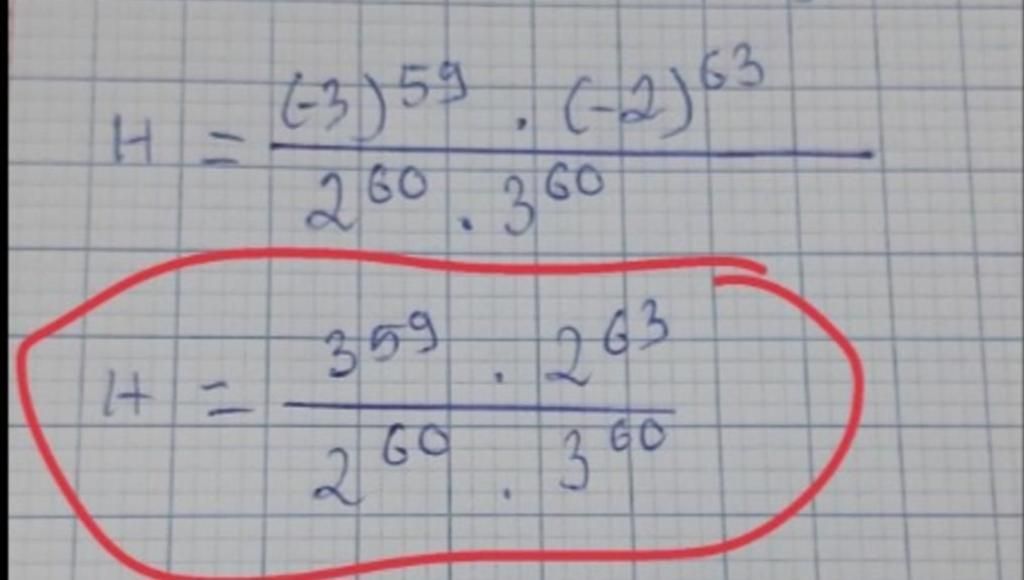 H = \frac{(-3)^{59} \cdot (-2)^{63}}{2^{60} \cdot 3^{60}}
H = \frac{3^{59} \cdot 2^{63}}{2^{60} \cdot 3^{60}}